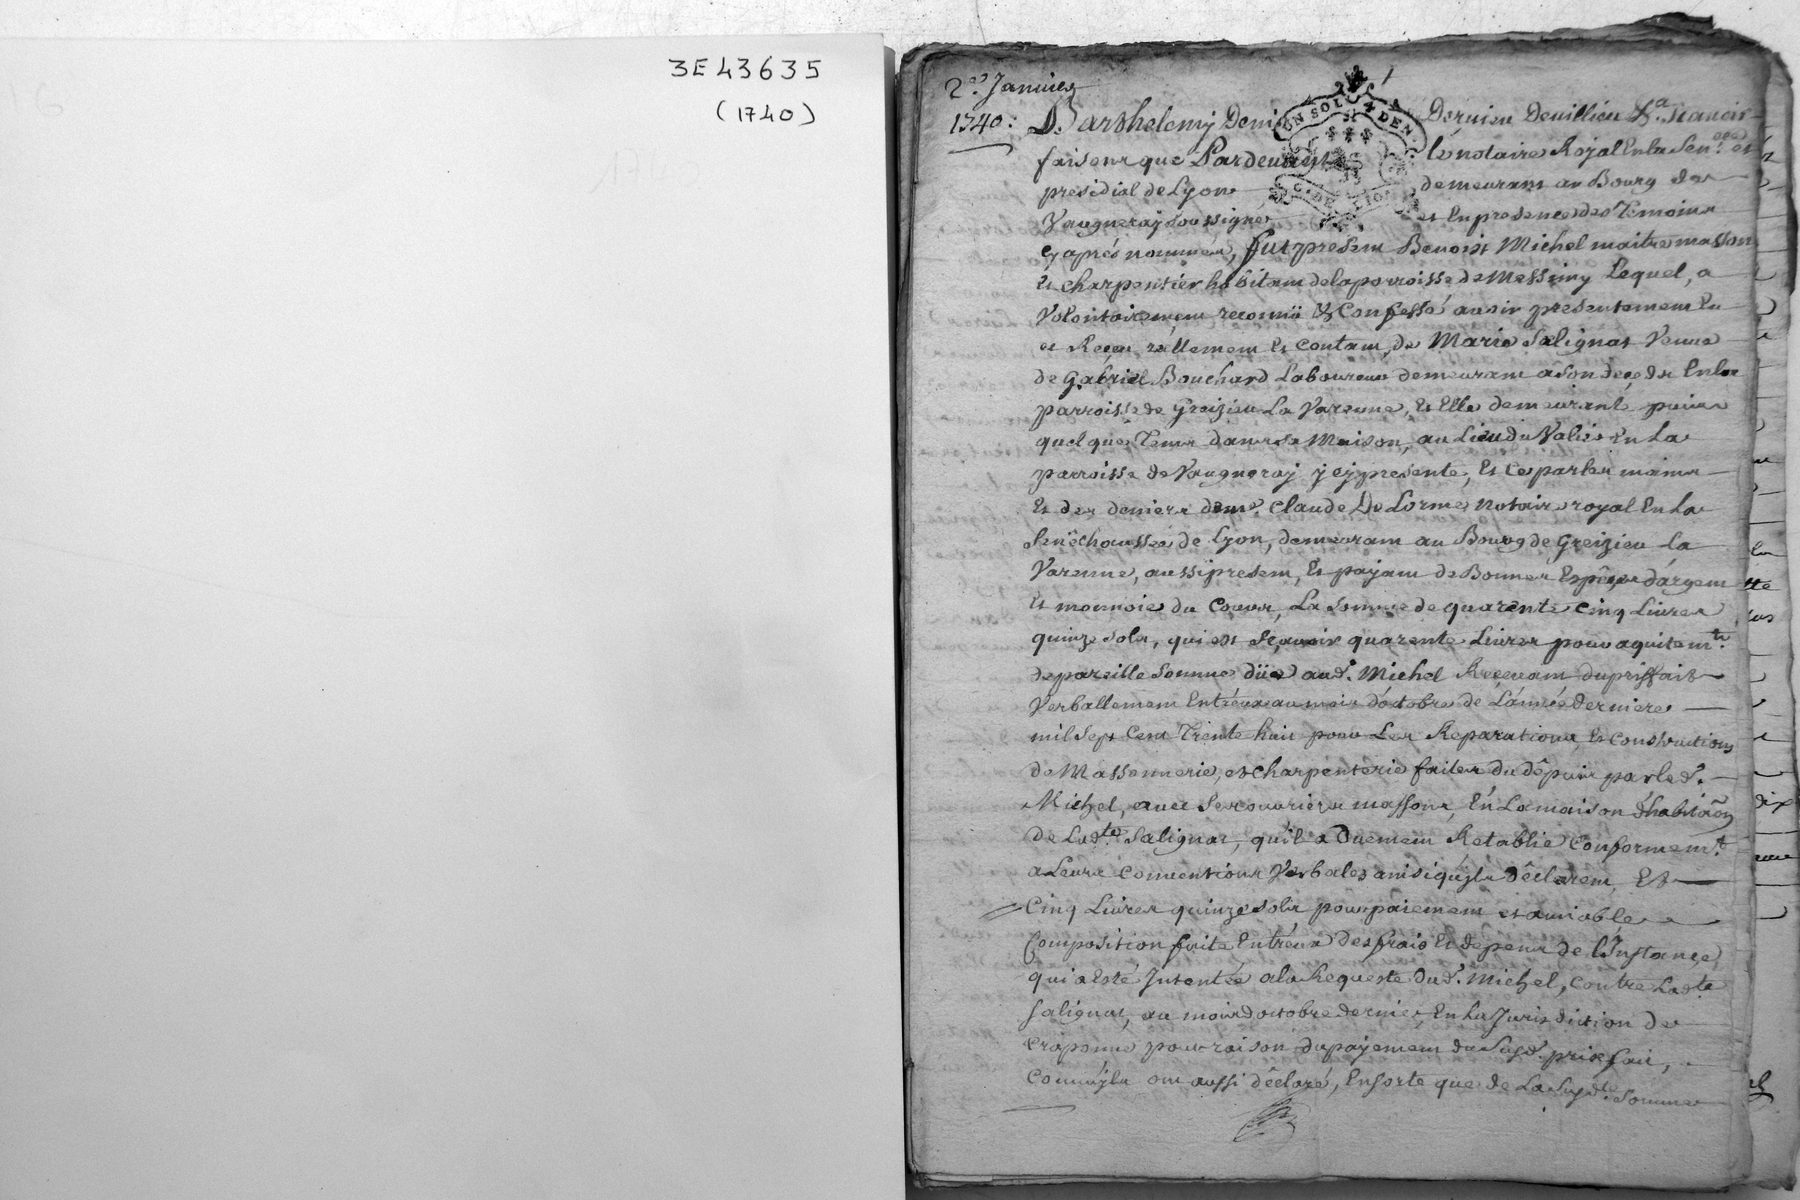 3E43635
(1740)
2e. Janvier
1740:
UN SOL 4 DEN.
G. DE LYON
Barthelemy Deni Dervieu Devillieu &a. scavoir
faisons que Pardevant le notaire Royal En la Sen.ee et
presidial de Lyon demeurant au Bourg de
Vaugneray Soussigné et En presence des Temoins
cy aprés nommés, fut present Benoist Michel maitre masson
Et charpentier habitant de la parroisse de Messimy Lequel, a
Volontairement reconnü & Confessé avoir presentement Eu
et Reçeu reellement Et Contant, de Marie Salignat Veuve
de Gabriel Bouchard Laboureur demeurant a son deçedz En la
parroisse de Greizieu La Varenne, Et Elle demeurant puis
quelque Tems dans sa Maison, au Lieu du Valier En La
parroisse de Vaugneray y cy presente, Et Ce par les mains
Et des deniers de me. Claude De Lorme Notaire royal En La
Senêchaussée de Lyon, demeurant au Bourg de Greizieu la
Varenne, aussi present, Et payant de Bonnes Espêçes d'argent
Et monnoie du Cours, La Somme de quarente Cinq Livres
quinze sols, qui est Sçavoir quarente Livres pour aquitemt.
de pareille Somme düe aud. Michel Reçevant du prisfait
Verballement Entr'eux au mois d'octobre de L'année derniere
mil Sept Cent Trente huit pour Les Reparations, Et Constructions
de Massonnerie, et charpenterie faites du dêpuis par led.
Michel, avec Ses ouvriers massons, En La maison d'habitaõn
de Lad.te Salignat, qu'il a Duement Retablie Conformemt.
a Leurs Conventions Verbales ainsi qu'ils dêclarent, Et
Cinq Livres quinze sols pour paiement et amiable
Composition faite Entr'eux des frais Et dêpens de L'Instançe
qui a Esté Intentée a la Requeste dud. Michel, Contre Lad.te
Salignat, au mois d'octobre dernier, En La Jurisdiction de
Craponne pour raison du payement du Susd. prix fait,
Comm'ils ont aussi dêclaré, Ensorte que de La Susd.te Somme